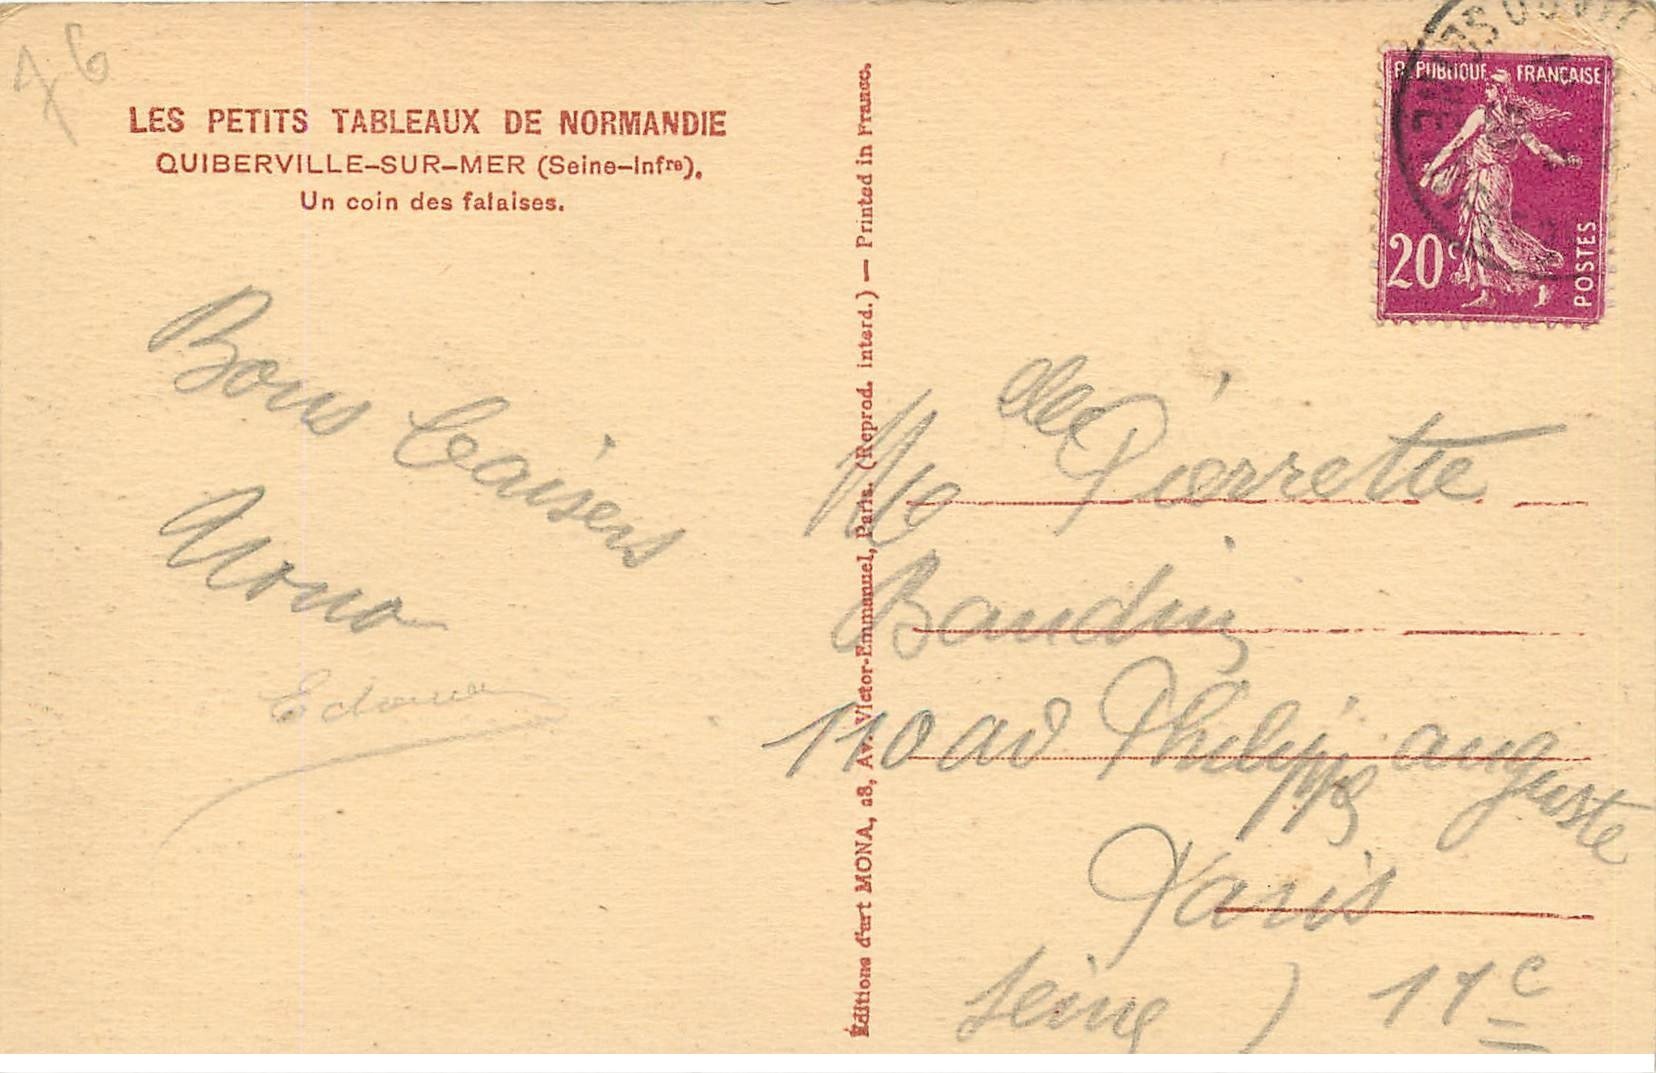 76
LES PETITS TABLEAUX DE NORMANDIE
QUIBERVILLE-SUR-MER (Seine-Infre).
Un coin des falaises.
Bons baisers
Éditions d'art MONA, 28, Av. Victor-Emmanuel, Paris. (Reprod. interd.) — Printed in France.
RÉPUBLIQUE FRANÇAISE
20c
POSTES
Melle Pierrette
Baudin
110 av Philippe auguste
Paris
Seine ) 11e